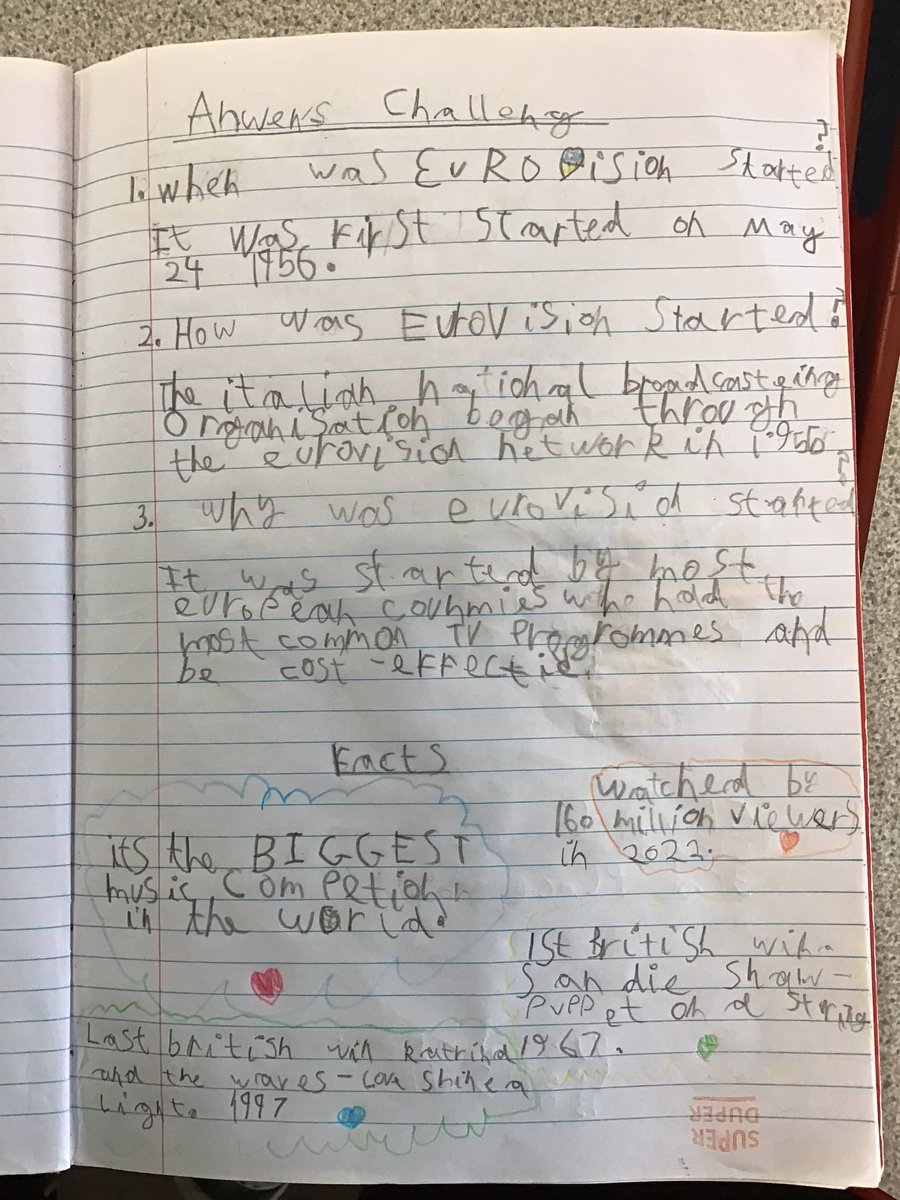 Anwers Challeng
1. when was EUROVision started?
It was First started on May
24 1956.
2. How was Eurovision started?
The italian national broadcasteing
Organisation began through
the eurovision network in 1955
3. why was eurovisiod started?
It was startend by most
european couhmies who had the
most common TV Programmes and
be cost-effectie.
Facts
watcherd by
160 million viewers
in 2022.
its the BIGGEST
music competiohn
in the world.
1st british win.
Sandie Shaw-
Puppet on a string
1967.
Last british win katrina
and the waves-Love Shine a
Light. 1997
SUPER
DUPER